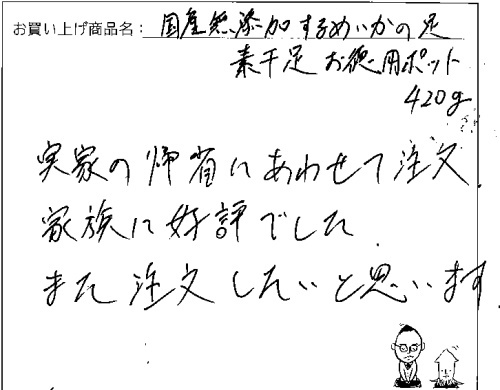 お買い上げ商品名: 国産無添加するめいかの足
素干足 お徳用ポット
420g
実家の帰省にあわせて注文.
家族に好評でした.
また注文したいと思います.